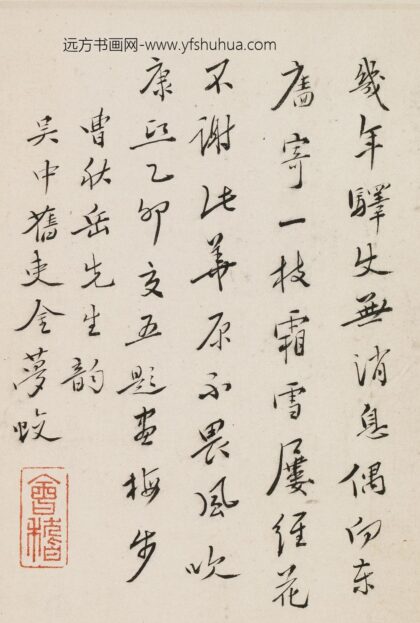 远方书画网-www.yfshuhua.com
幾年驛使無消息偶向東
廧寄一枝霜雪屢經花
不謝此華原不畏風吹
康熙乙卯夏五題畫梅步
曹秋岳先生韵
吴中舊吏金夢蛟
會稽